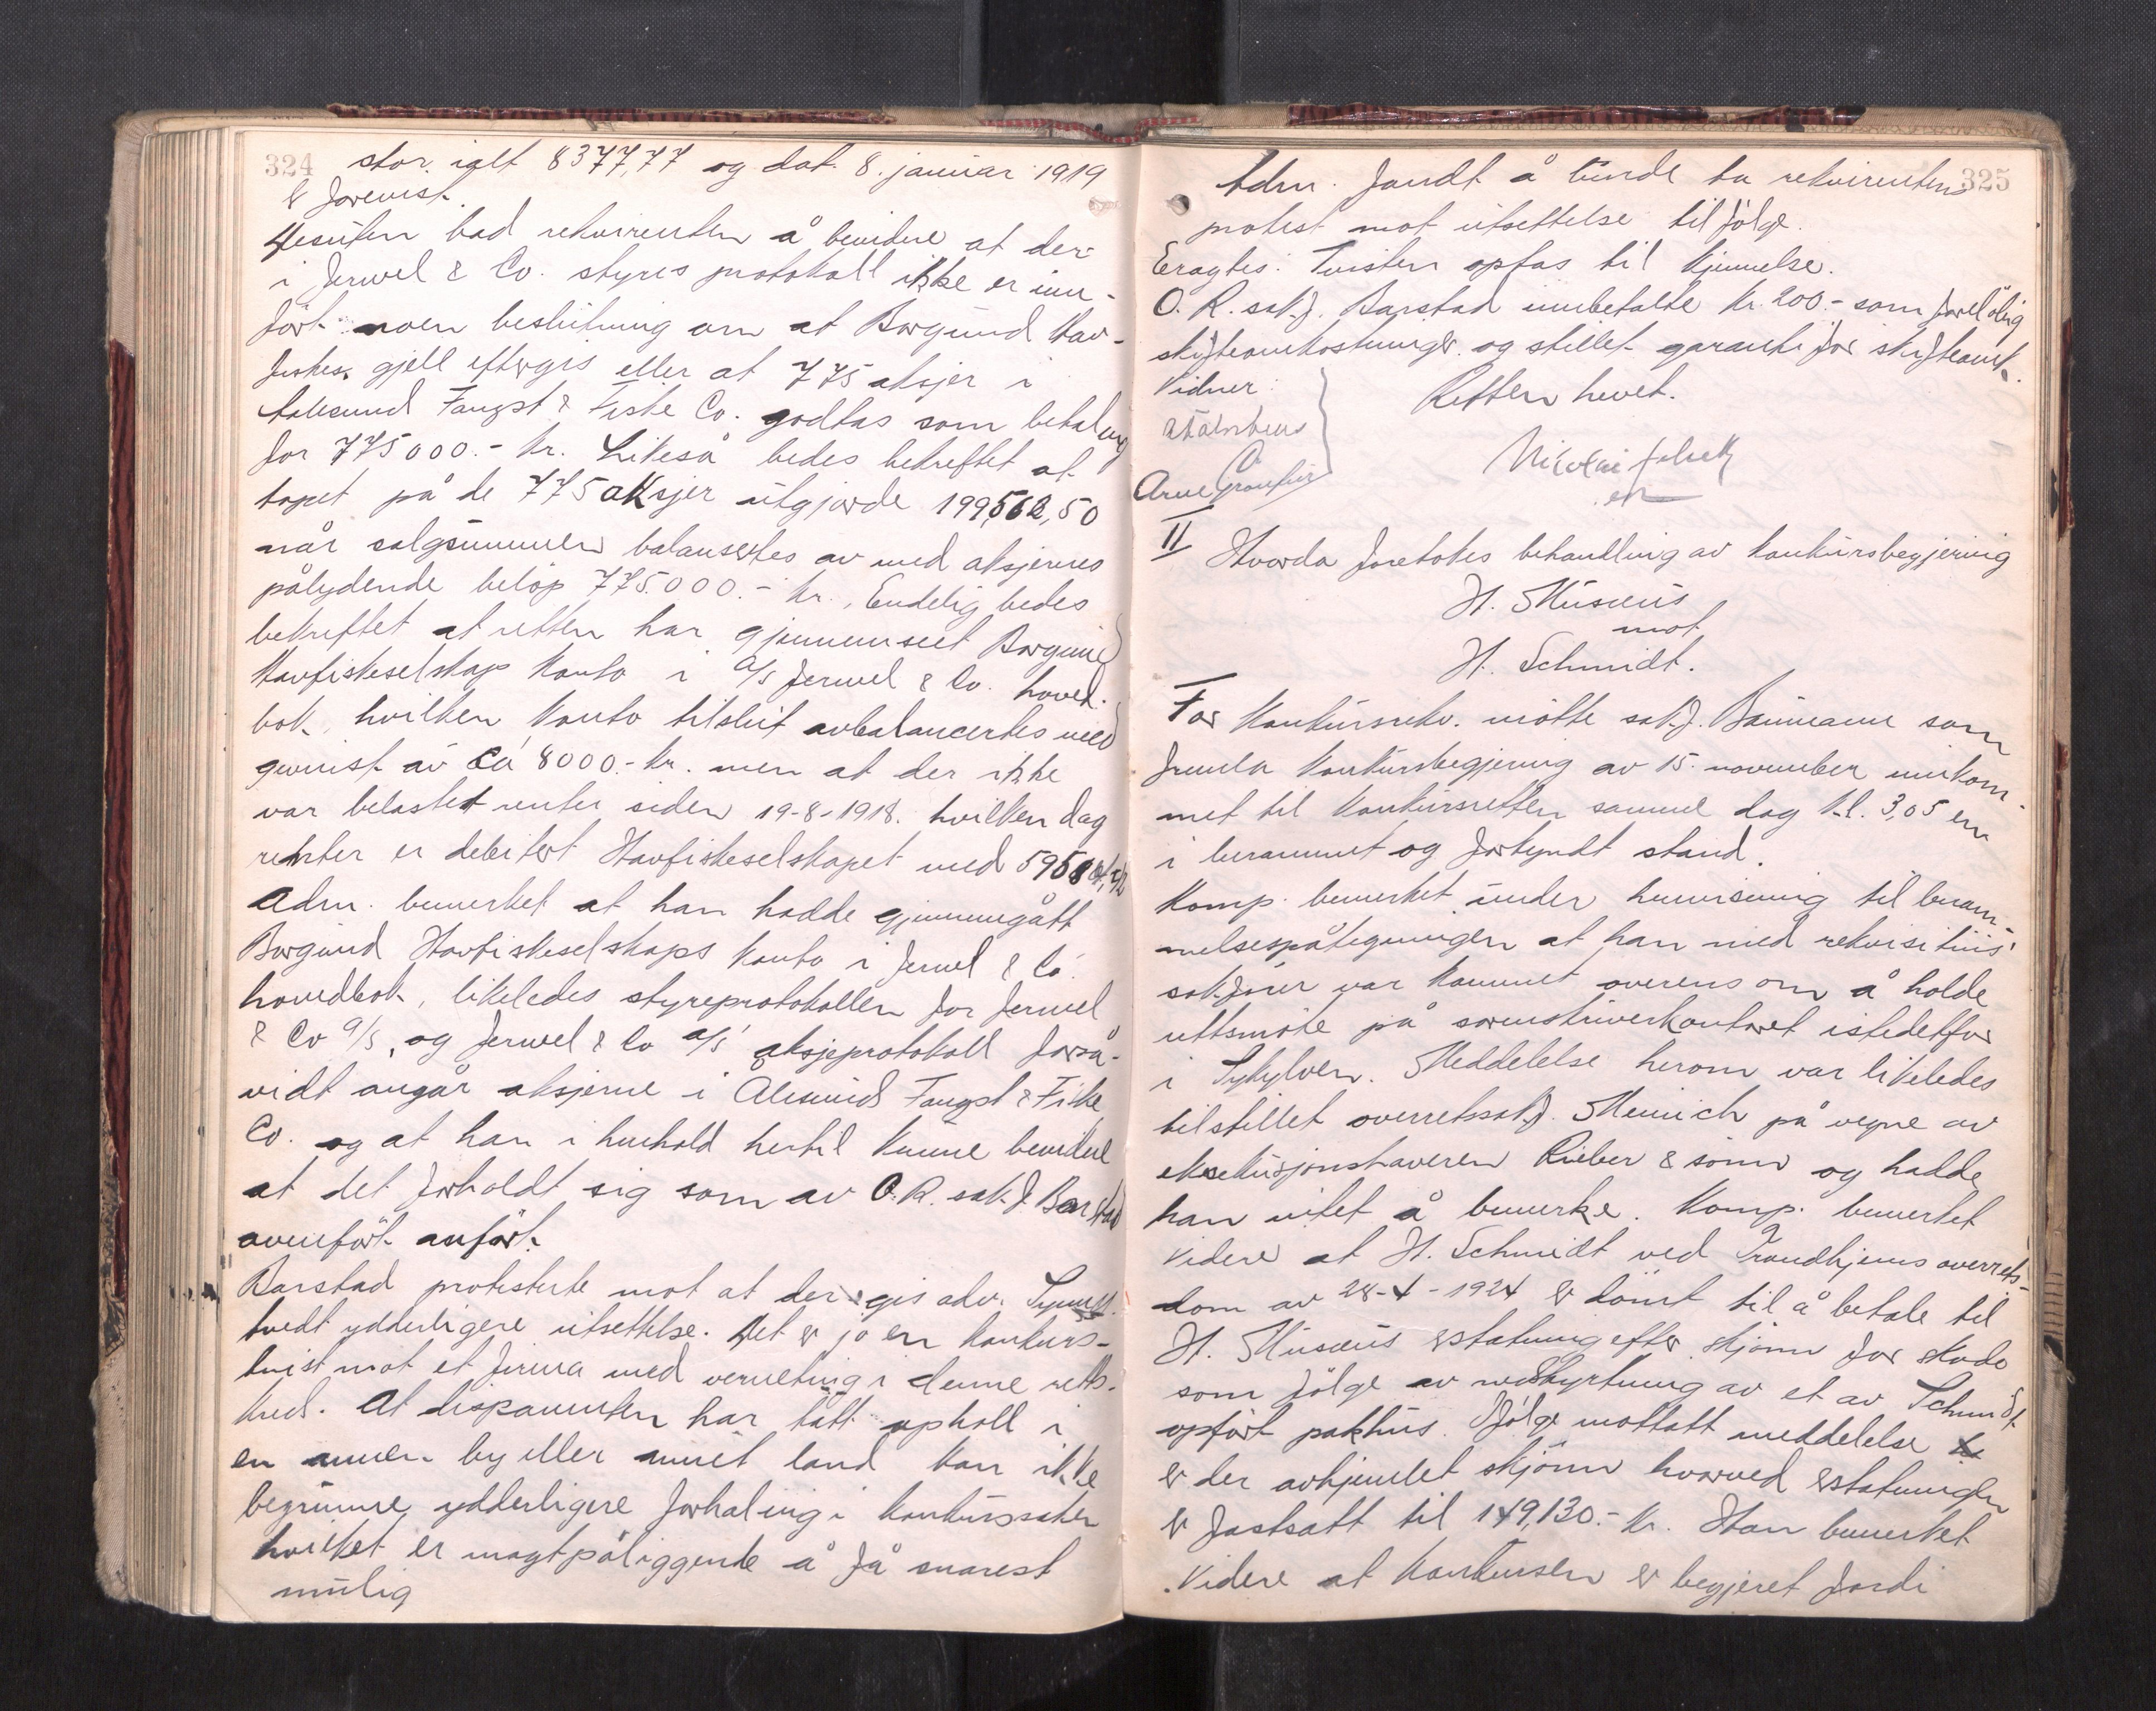 324
stor. ialt 8377,77 og dat. 8. januar 1919
er forevist.
Desuten bad rekvirenten å bevidne at der
i Jervel & Co. styres protokoll ikke er inn-
ført noen beslutning om at Borgund Hav-
fiskes. gjell eftergis eller at 775 aksjer i
Aalesund Fangst & Fiske Co. godtas som betaling
for 775000.- kr. Likeså bedes bekreftet at
tapet på de 775 aksjer utgjorde 199,562,50
når salgsummen balansertes av med aksjenes
pålydende beløp 775.000.- kr. Endelig bedes
bekreftet at retten har gjennemseet Borgund
Havfiskeselskap konto i A/S Jervel & Co. hoved-
bok, hvilken konto tilslut avbalancertes med
gevinst av ca 8000.- kr. men at der ikke
var belastet renter siden 19-8-1918. hvilken dag
renter er debitert Havfiskeselskapet med
Adm. bemerket at han hadde gjennemgått
Borgund Havfiskeselskaps konto i Jervel & Co.
hovedbok, likeledes styreprotokollen for Jervel
& Co A/S, og Jervel & Co A/S aksjeprotokoll forså-
vidt angår aksjene i Ålesund Fangst & Fiske
Co. og at han i henhold hertil kunne bevidne
at det forholdt sig som av O.R. sakf. Barstad
ovenført anført.
Barstad protesterte mot at der gis adv.
tvedt ydderligere utsettelse. Det er jo en konkurs-
tvist mot et firma med verneting i denne retts-
kred. At disponenten har tatt ophold i
en annen by eller annet land kan ikke
begrunne ydderligere forhaling i konkurssaken
hvilket er magtpåliggende å få snarest
mulig
325
Adm. fandt å burde ta rekvirentens
protest mot utsettelse til følge.
Eragtes: Tvisten optas til kjennelse.
O. R. sakf. Barstad innbetalte kr. 200.- som foreløbig
skifteomkostninger og stillet garanti for skifteomk.
Vidner:
Retten hevet.
Arne
II
Hvorda foretokes behandling av konkursbegjering
H. Musæus
mot
H. Schmidt.
For konkursrekv. møtte sakf. Baumann som
fremla konkursbegjering av 15. november innkom-
met til konkursretten samme dag kl. 3,05 em
i berammet og forkyndt stand.
Komp. bemerket under henvisning til beram-
melsespåtegningen at han med rekvisitus'
sakfører var kommet overens om å holde
rettsmøte på sorenskriverkontoret istedetfor
i Sykylven. Meddelelse herom var likeledes
tilstillet overretssakf. Meinich på vegne av
eksekusjonshaveren Rieber & sønn og hadde
han intet å bemerke. Komp. bemerket
videre at H. Schmidt ved Trondhjems overrets
dom av 28-4-1924 er dømt til å betale til
H. Musæus erstatning efter skjønn for skade
som følge av nedstyrtning av et av Schmidt
opført pakhus. Ifølge mottatt meddelelse
er der avhjemlet skjønn hvorved erstatningen
er fastsatt til 149,130.- kr. Han bemerket
videre at konkursen er begjeret fordi